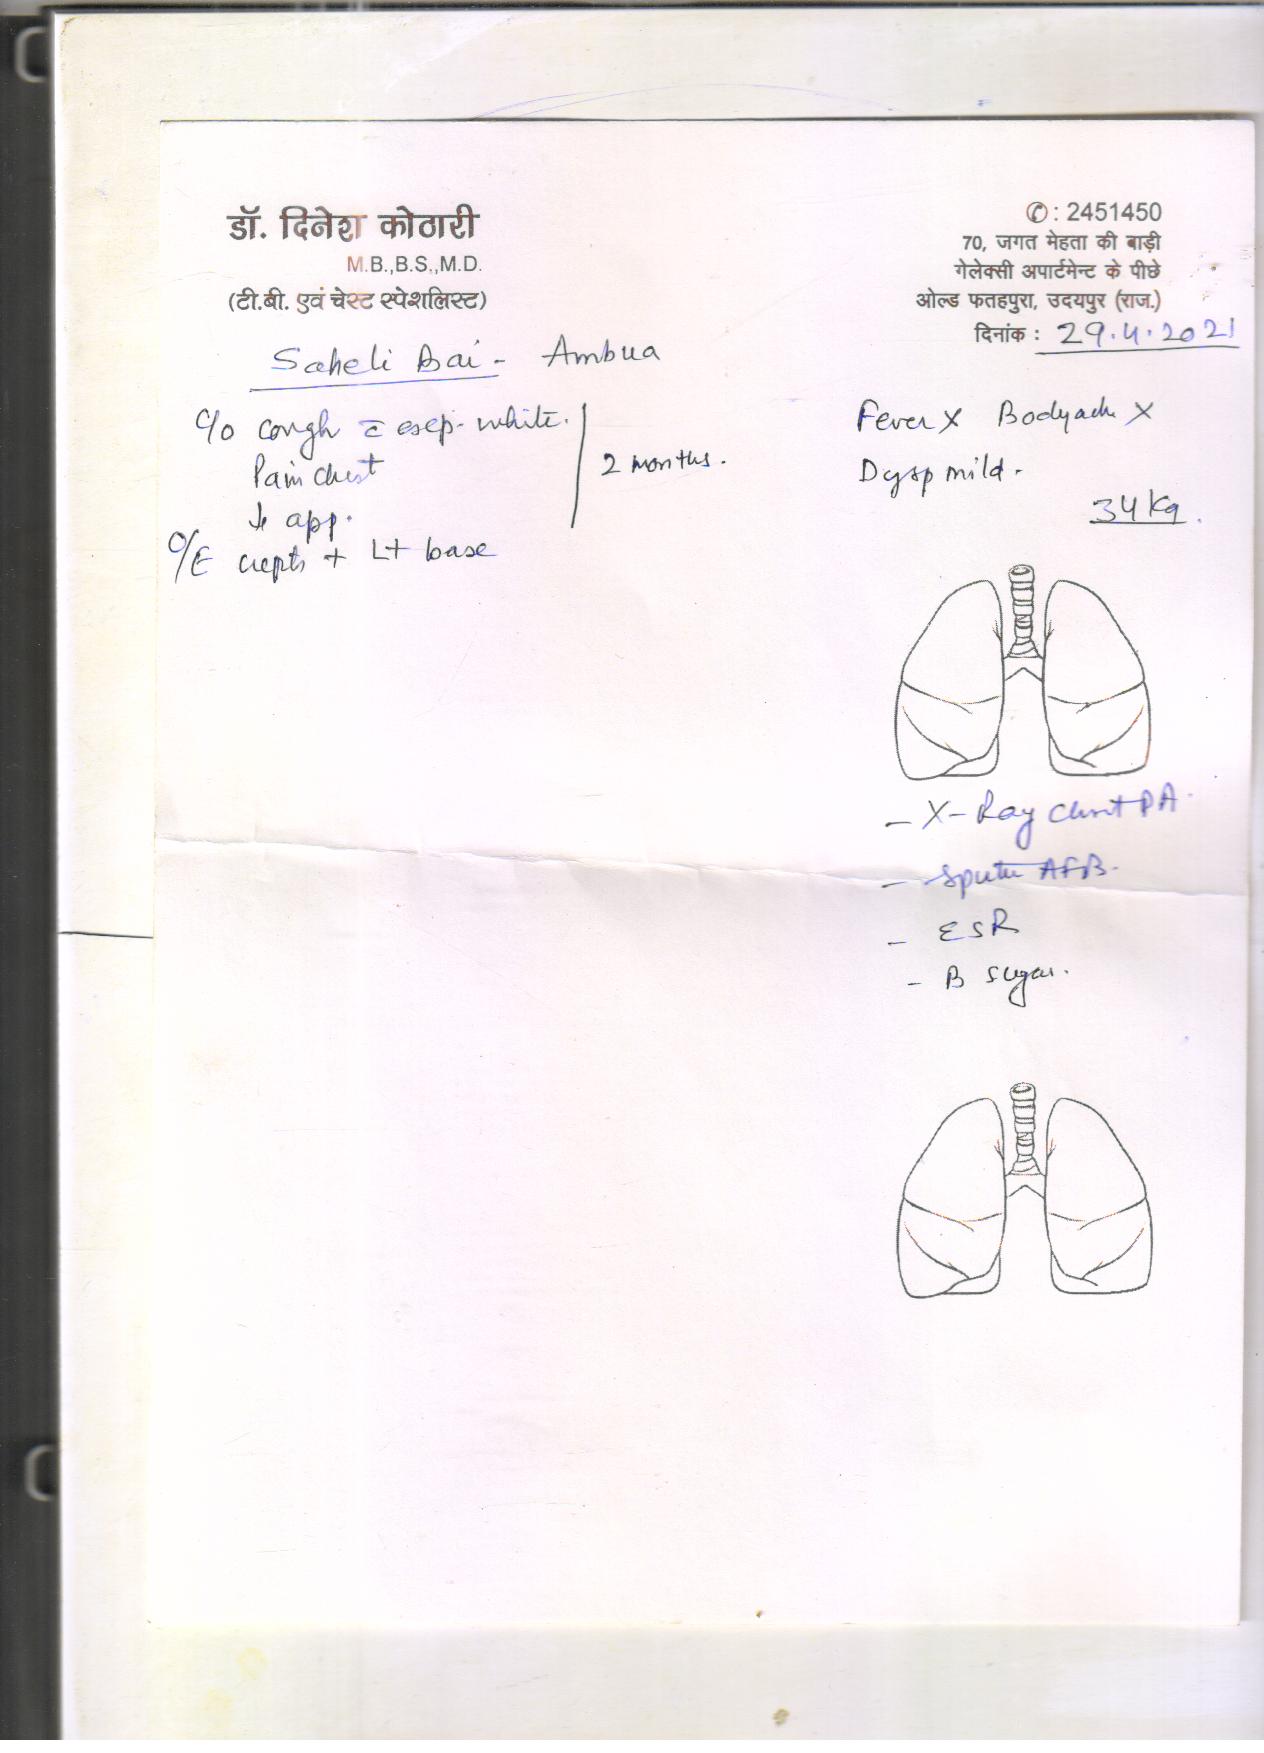 डॉ. दिनेश कोठारी
M.B.,B.S.,M.D.
(टी.बी. एवं चेस्ट स्पेशलिस्ट)
✆: 2451450
70, जगत मेहता की बाड़ी
गेलेक्सी अपार्टमेन्ट के पीछे
ओल्ड फतहपुरा, उदयपुर (राज.)
दिनांक : 29.4.2021
Saheli Bai - Ambua
c/o cough c̄ exep. white.
Pain chest
↓ app.
2 months.
O/E crepts + Lt base
Fever X Bodyache X
Dysp mild.
34 Kg.
- X-Ray Chest PA.
- Sputum AFB.
- ESR
- B sugar.